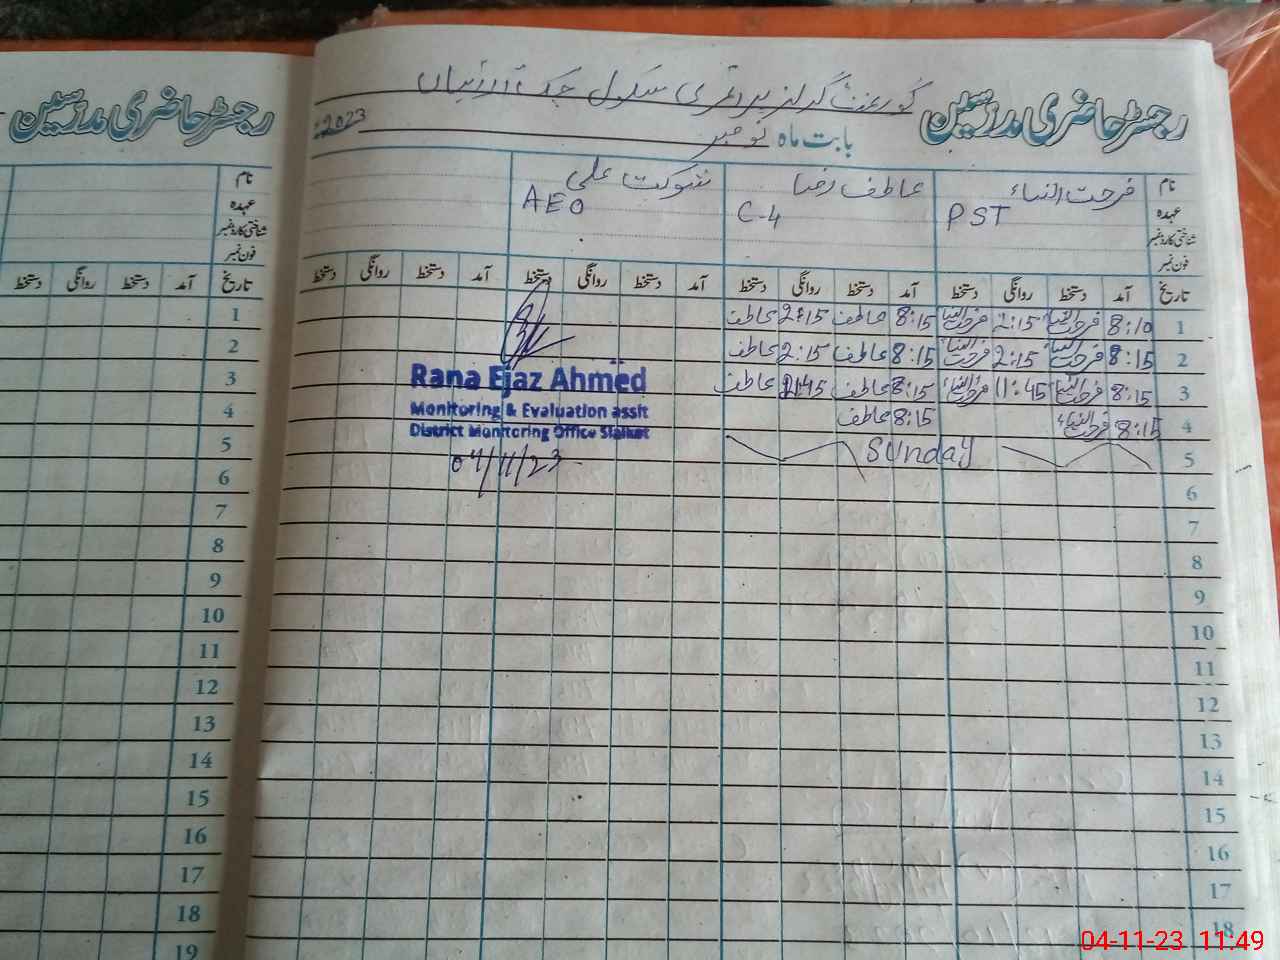 رجسٹر حاضری مدرسین
رجسٹر حاضری مدرسین گورنمنٹ گرلز پرائمری سکول چک
بابت ماہ نومبر 2023
نام
عہدہ
شناختی کارڈ نمبر
فون نمبر
تاریخ آمد دستخط روانگی دستخط
1
2
3
4
5
6
7
8
9
10
11
12
13
14
15
16
17
18
19
نام فرحت النساء عاطف رضا شوکت علی
عہدہ PST C-4 AEO
شناختی کارڈ نمبر
فون نمبر
تاریخ آمد دستخط روانگی دستخط آمد دستخط روانگی دستخط آمد دستخط روانگی دستخط آمد دستخط روانگی دستخط
1 8:10 فرحت النساء 2:15 فرحت النساء 8:15 عاطف 2:15 عاطف
2 8:15 فرحت النساء 2:15 فرحت النساء 8:15 عاطف 2:15 عاطف
3 8:15 فرحت النساء 11:45 فرحت النساء 8:15 عاطف 11:45 عاطف
4 8:15 فرحت النساء 8:15 عاطف
5 Sunday
6
7
8
9
10
11
12
13
14
15
16
17
18
Rana Ejaz Ahmed
Monitoring & Evaluation assit
District Monitoring Office Sialkot
04/11/23
04-11-23 11:49